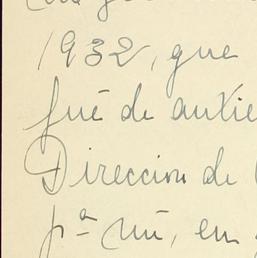 1932, que
fué de auxi
Direccion de
pª mi, en